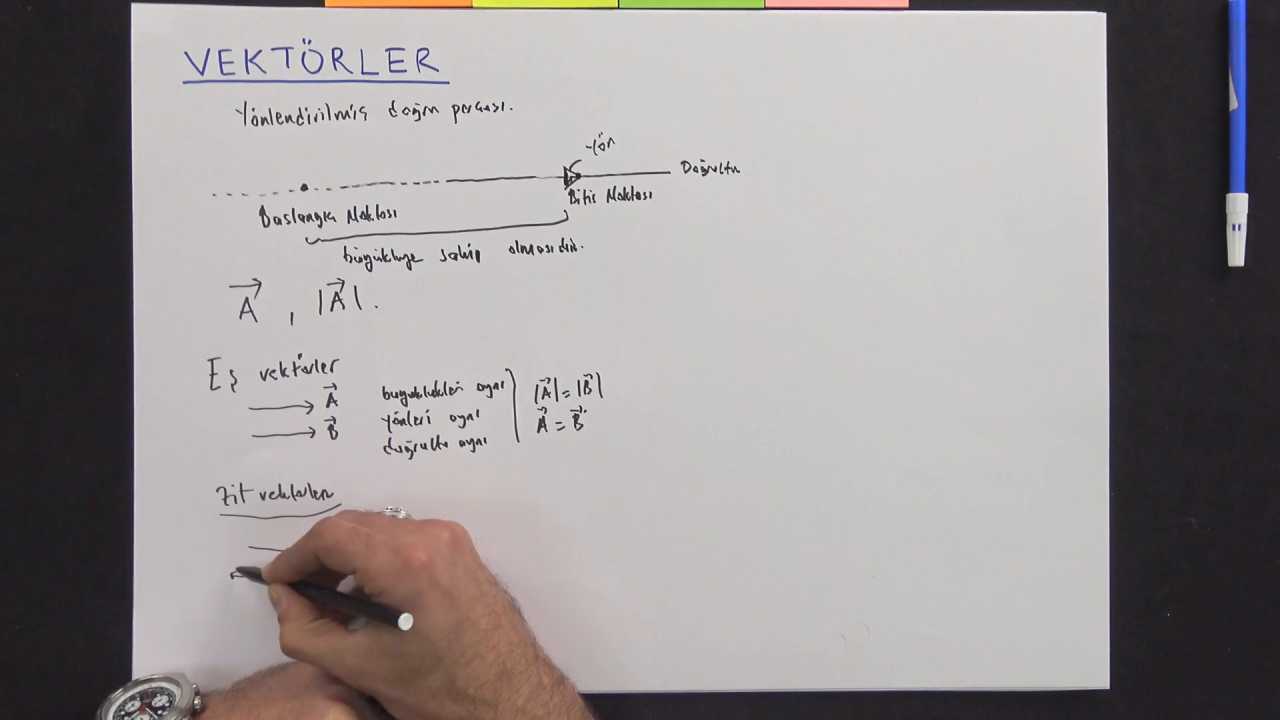 VEKTÖRLER
Yönlendirilmiş doğru parçası.
Yön
Doğrultu
Başlangıç Noktası
Bitiş Noktası
büyüklüğe sahip olmasıdır.
A⃗ , |A⃗|.
Eş vektörler
A⃗ büyüklükleri aynı |A⃗| = |B⃗|
B⃗ yönleri aynı A⃗ = B⃗
doğrultu aynı
Zıt vektörler